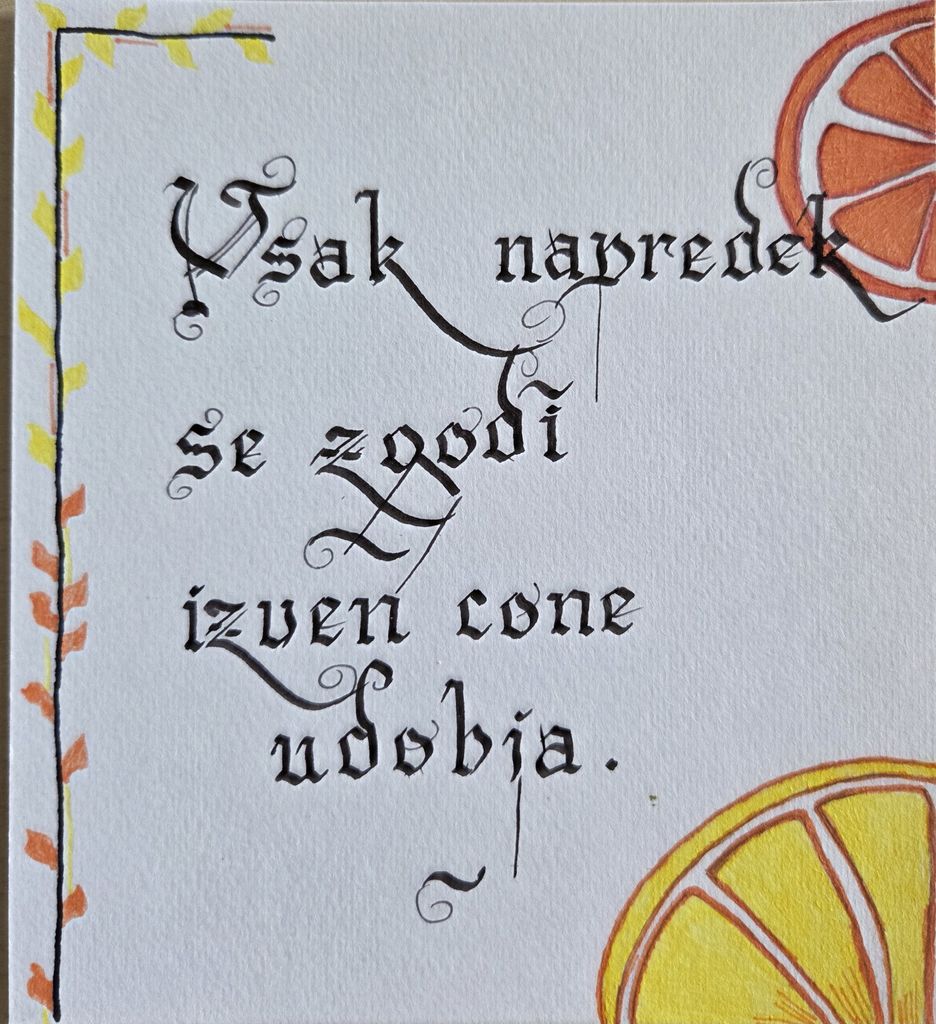 Vsak napredek
se zgodi
izven cone
udobja.